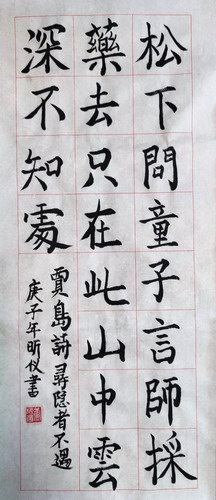 松下問童子言師採
藥去只在此山中雲
深不知處
賈島詩尋隱者不遇
庚子年昕仪書